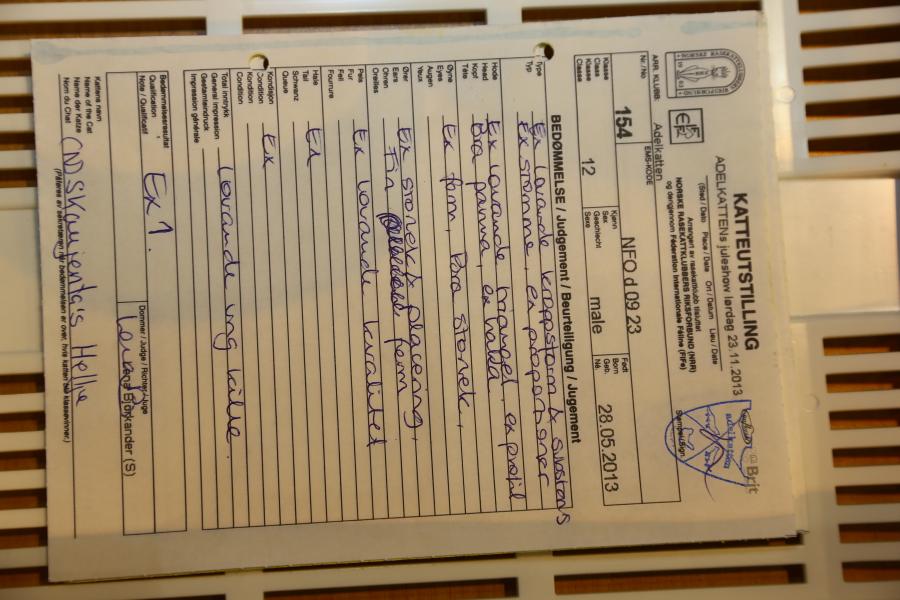 KATTEUTSTILLING
ADELKATTENs juleshow lørdag 23.11.2013
(Sted / Dato Place / Date Ort / Datum Lieu / Date)
Arrangert av rasekattklubb tilsluttet
NORSKE RASEKATTKLUBBERS RIKSFORBUND (NRR)
og derigjennom Fédération Internationale Féline (FIFe)
Brit
Stempel/Sign.
ARR. KLUBB: Adelkatten
Nr./No 154
EMS-KODE NFO d 09 23
Klasse
Class
Klasse
Classe
12
Kjønn
Sex
Geschlecht
Sexe
male
Født
Born
Geb.
Né
28.05.2013
BEDØMMELSE / Judgement / Beurteiligung / Jugement
Type Ex lovande kroppsform & substans
Typ Ex stomme, ex proportioner
Hode Ex lovande triangel, ex profil
Head Bra panna, ex haka
Kopf
Tête
Øyne Ex form, Bra storlek,
Eyes
Augen
Yeux
Ører Ex storlek & placering,
Ears Fin form
Ohren
Oreilles
Pels Ex lovande kvalitet
Fur
Fell
Fourrure
Hale Ex
Tail
Schwanz
Queue
Kondisjon Ex
Condition
Kondition
Condition
Total inntrykk Lovande ung kille.
General impression
Gesamteindruck
Impression générale
Bedømmelsesresultat
Qualification
Note / Qualificatif
Ex 1.
Dommer / Judge / Richter / Juge
Björkander (S)
Kattens navn
Name of the Cat
Name der Katze
Nom du Chat
(N) Skaujenta's Helke
(Påføres av sekretæren når bedømmelsen er over, hvis katten blir klassevinner.)